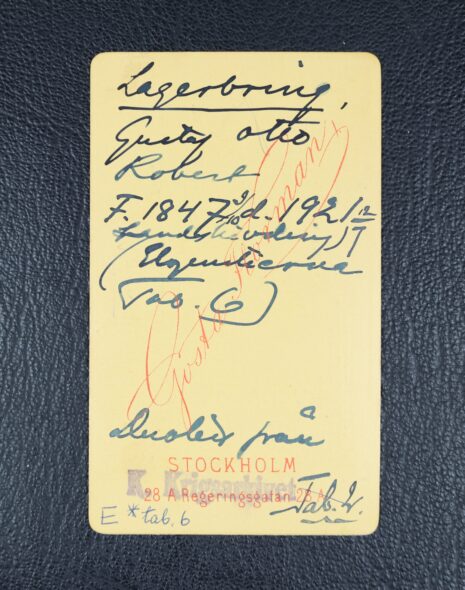 Lagerbring,
Gustaf Otto
Robert
F. 1847 3/10 d. 1921 12/7
Landshövding)
(Elgenstierna
Tab. 6)
Gösta Florman
Dublett från
STOCKHOLM
K. Krigsarkivet
28 A Regeringsgatan 28 A
Tab.
E * tab. 6